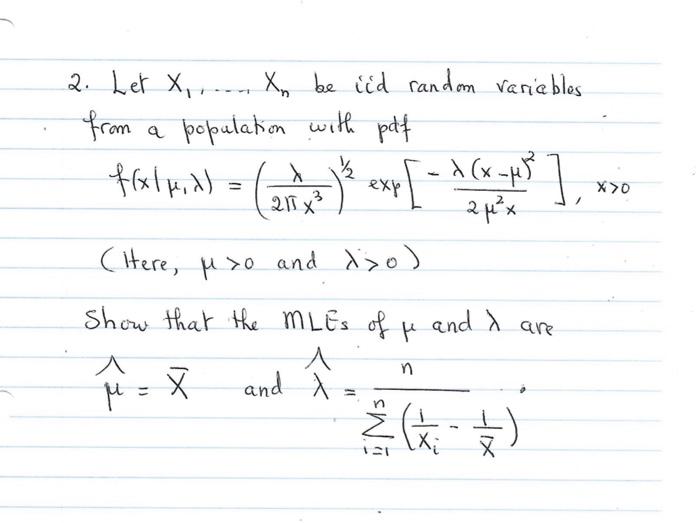 2. Let X₁, ...., Xₙ be iid random variables
from a population with pdf
f(x|μ,λ) = (λ / 2πx³)^½ exp[ - λ(x-μ)² / 2μ²x ], x>0
(Here, μ>0 and λ>0)
Show that the MLEs of μ and λ are
μ̂ = X̄ and λ̂ = n / Σⁿᵢ₌₁ (1/Xᵢ - 1/X̄).